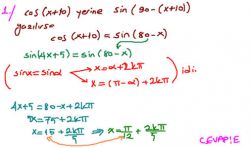 1-) cos(x+10) yerine sin(90-(x+10))
yazılırsa
cos(x+10) = sin(80-x)
sin(4x+5) = sin(80-x)
(sinx = sinα x = α+2kπ
x = (π-α)+2kπ) idi.
4x+5 = 80-x+2kπ
5x = 75+2kπ
x = 15+2kπ/5 ⇒ x = π/12 + 2kπ/5
CEVAP:E